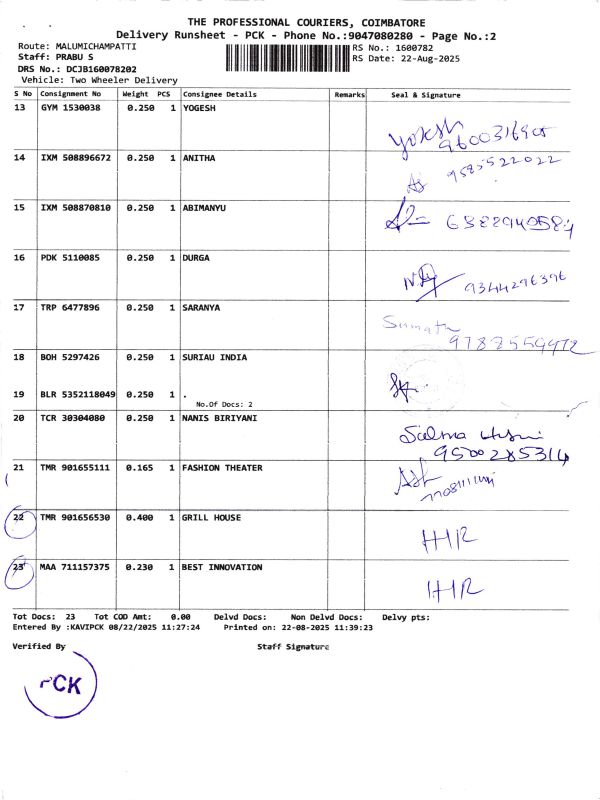 THE PROFESSIONAL COURIERS, COIMBATORE
Delivery Runsheet - PCK - Phone No.:9047080280 - Page No.:2
Route: MALUMICHAMPATTI
Staff: PRABU S
DRS No.: DCJB160078202
Vehicle: Two Wheeler Delivery
RS No.: 1600782
RS Date: 22-Aug-2025
S No Consignment No Weight PCS Consignee Details Remarks Seal & Signature
13 GYM 1530038 0.250 1 YOGESH
14 IXM 508896672 0.250 1 ANITHA
9585522022
15 IXM 508870810 0.250 1 ABIMANYU
16 PDK 5110085 0.250 1 DURGA
9344296396
17 TRP 6477896 0.250 1 SARANYA
18 BOH 5297426 0.250 1 SURIAU INDIA
19 BLR 5352118049 0.250 1 .
No.Of Docs: 2
20 TCR 30304080 0.250 1 NANIS BIRIYANI
Salma
9500285314
21 TMR 901655111 0.165 1 FASHION THEATER
22 TMR 901656530 0.400 1 GRILL HOUSE
23 MAA 711157375 0.230 1 BEST INNOVATION
Tot Docs: 23 Tot COD Amt: 0.00 Delvd Docs: Non Delvd Docs: Delvy pts:
Entered By :KAVIPCK 08/22/2025 11:27:24 Printed on: 22-08-2025 11:39:23
Verified By Staff Signature
PCK